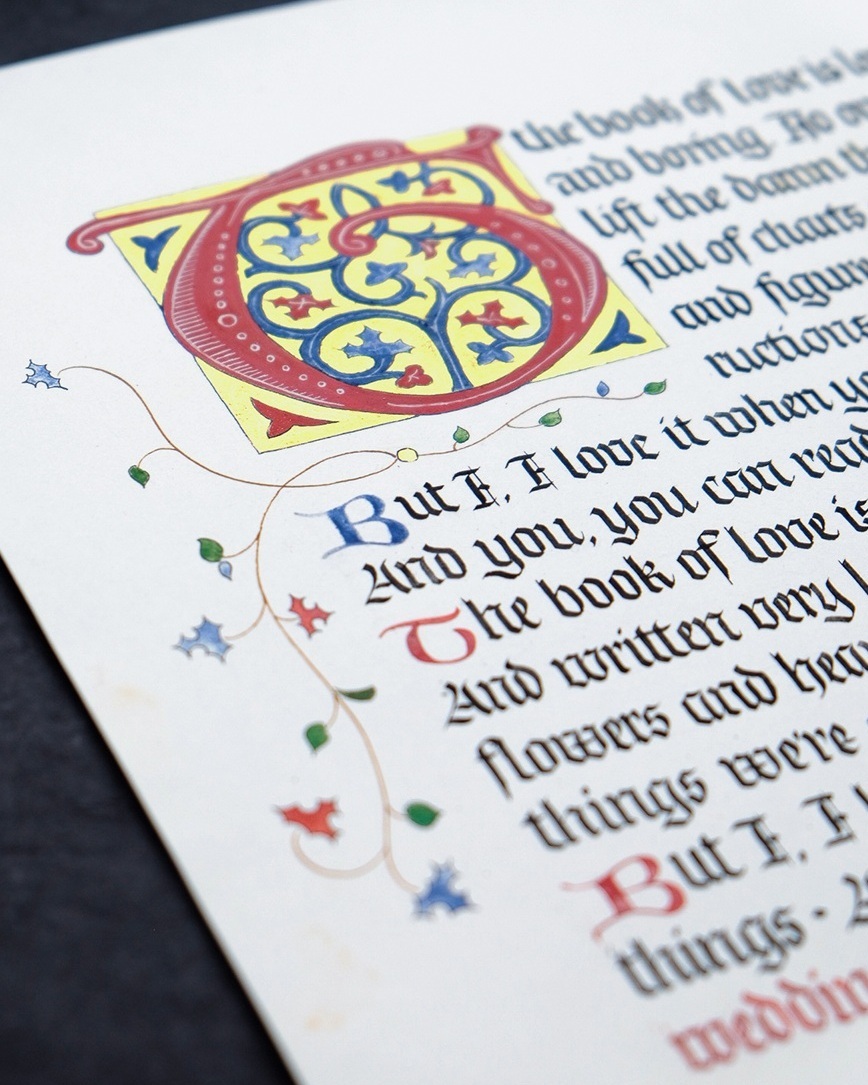 The book of love is
and boring. No
lift the damn
full of charts
and
ructions
But I, I love it when
And you, you can
The book of love is
And written very
flowers and
things we're
But I, I
things.